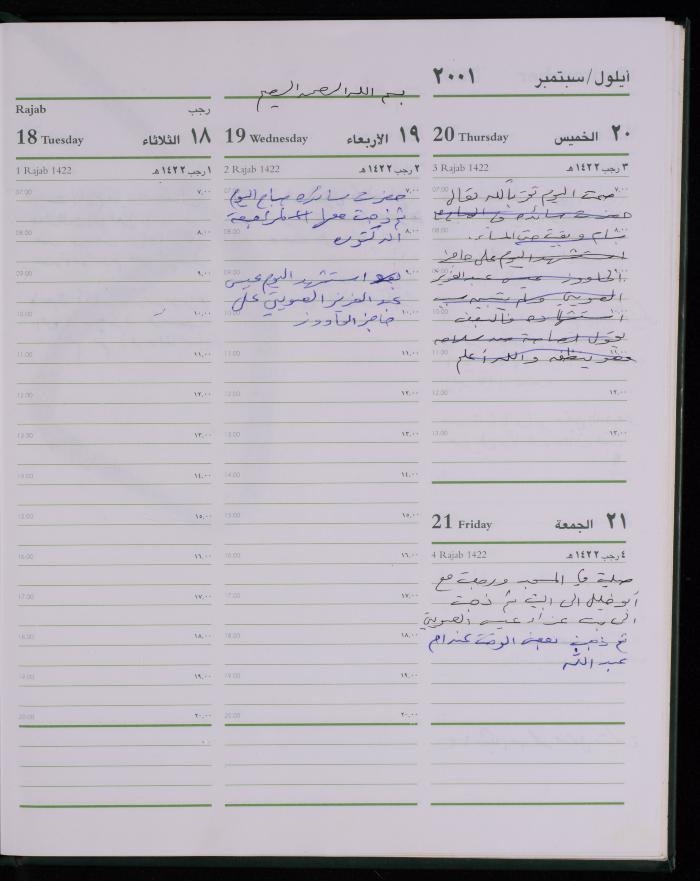 أيلول/سبتمبر ٢٠٠١
بسم الله الرحمن الرحيم
Rajab رجب
18 Tuesday الثلاثاء ١٨
1 Rajab 1422 ١ رجب ١٤٢٢هـ
07:00 ٧,٠٠
08:00 ٨,٠٠
09:00 ٩,٠٠
10:00 ١٠,٠٠
11:00 ١١,٠٠
12:00 ١٢,٠٠
13:00 ١٣,٠٠
14:00 ١٤,٠٠
15:00 ١٥,٠٠
16:00 ١٦,٠٠
17:00 ١٧,٠٠
18:00 ١٨,٠٠
19:00 ١٩,٠٠
20:00 ٢٠,٠٠
19 Wednesday الأربعاء ١٩
2 Rajab 1422 ٢ رجب ١٤٢٢هـ
07:00 ٧,٠٠
حضرت سائده صباح اليوم
ثم ذهبت معها لمراجعة
08:00 ٨,٠٠
الدكتوره
09:00 ٩,٠٠
استشهد اليوم عيسى
عبد العزيز العويني على
10:00 ١٠,٠٠
حاجز الوو
11:00 ١١,٠٠
12:00 ١٢,٠٠
13:00 ١٣,٠٠
14:00 ١٤,٠٠
15:00 ١٥,٠٠
16:00 ١٦,٠٠
17:00 ١٧,٠٠
18:00 ١٨,٠٠
19:00 ١٩,٠٠
20:00 ٢٠,٠٠
20 Thursday الخميس ٢٠
3 Rajab 1422 ٣ رجب ١٤٢٢هـ
07:00 ٧,٠٠
صمت اليوم لله تعالى
حضرت سائده
08:00 ٨,٠٠
وبقيت حتى المساء
استشهد اليوم على حاجز
09:00 ٩,٠٠
عيسى عبد العزيز
العويني ولم سبب
10:00 ١٠,٠٠
استشهاده
يقول
11:00 ١١,٠٠
وهو ينظفه والله أعلم
12:00 ١٢,٠٠
13:00 ١٣,٠٠
21 Friday الجمعة ٢١
4 Rajab 1422 ٤ رجب ١٤٢٢هـ
صليت في المسجد ورجعت مع
أبو خليل الى البيت ثم ذهبت
الى بيت عزاء عيسى العويني
ثم ذهبت بعض الوقت عند ام
عبد الله